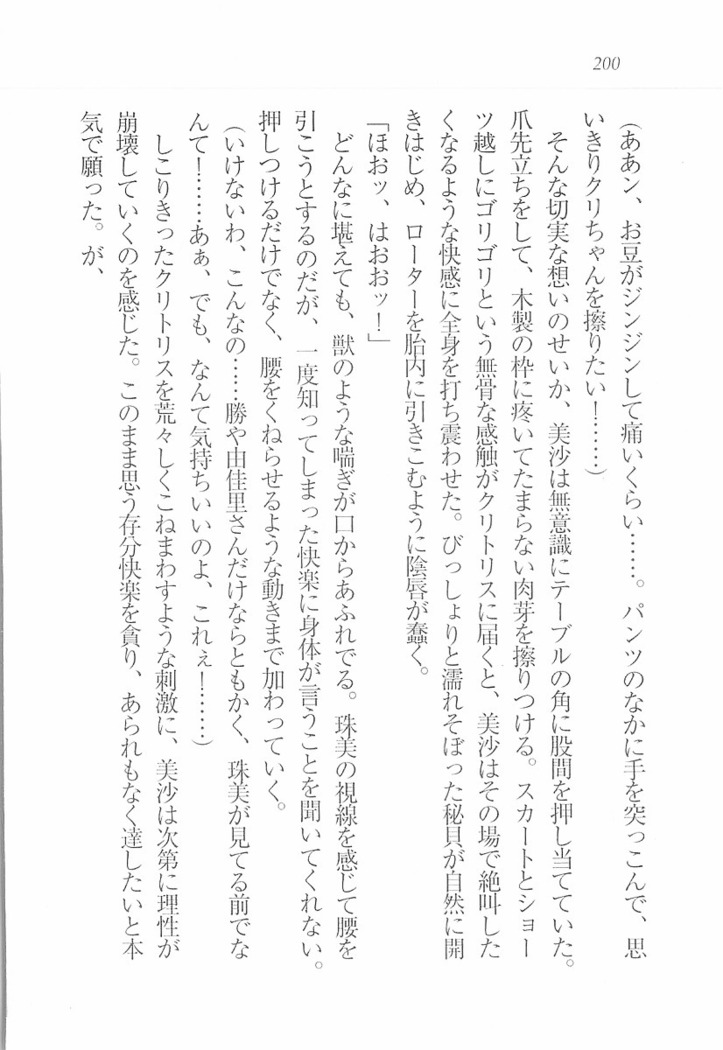 200
（ああン、お豆がジンジンして痛いくらい……。パンツのなかに手を突っこんで、思
いきりクリちゃんを擦りたい！……）
そんな切実な想いのせいか、美沙は無意識にテーブルの角に股間を押し当てていた。
爪先立ちをして、木製の枠に疼いてたまらない肉芽を擦りつける。スカートとショー
ツ越しにゴリゴリという無骨な感触がクリトリスに届くと、美沙はその場で絶叫した
くなるような快感に全身を打ち震わせた。びっしょりと濡れそぼった秘貝が自然に開
きはじめ、ローターを胎内に引きこむように陰唇が蠢く。
「ほおッ、はおおッ！」
どんなに堪えても、獣のような喘ぎが口からあふれでる。珠美の視線を感じて腰を
引こうとするのだが、一度知ってしまった快楽に身体が言うことを聞いてくれない。
押しつけるだけでなく、腰をくねらせるような動きまで加わっていく。
（いけないわ、こんなの……勝や由佳里さんだけならともかく、珠美が見てる前でな
んて！……あぁ、でも、なんて気持ちいいのよ、これぇ！……）
しこりきったクリトリスを荒々しくこねまわすような刺激に、美沙は次第に理性が
崩壊していくのを感じた。このまま思う存分快楽を貪り、あられもなく達したいと本
気で願った。が、